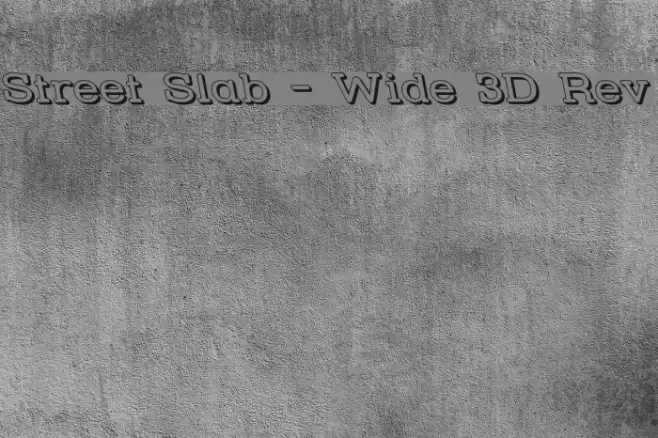 Street Slab - Wide 3D Rev